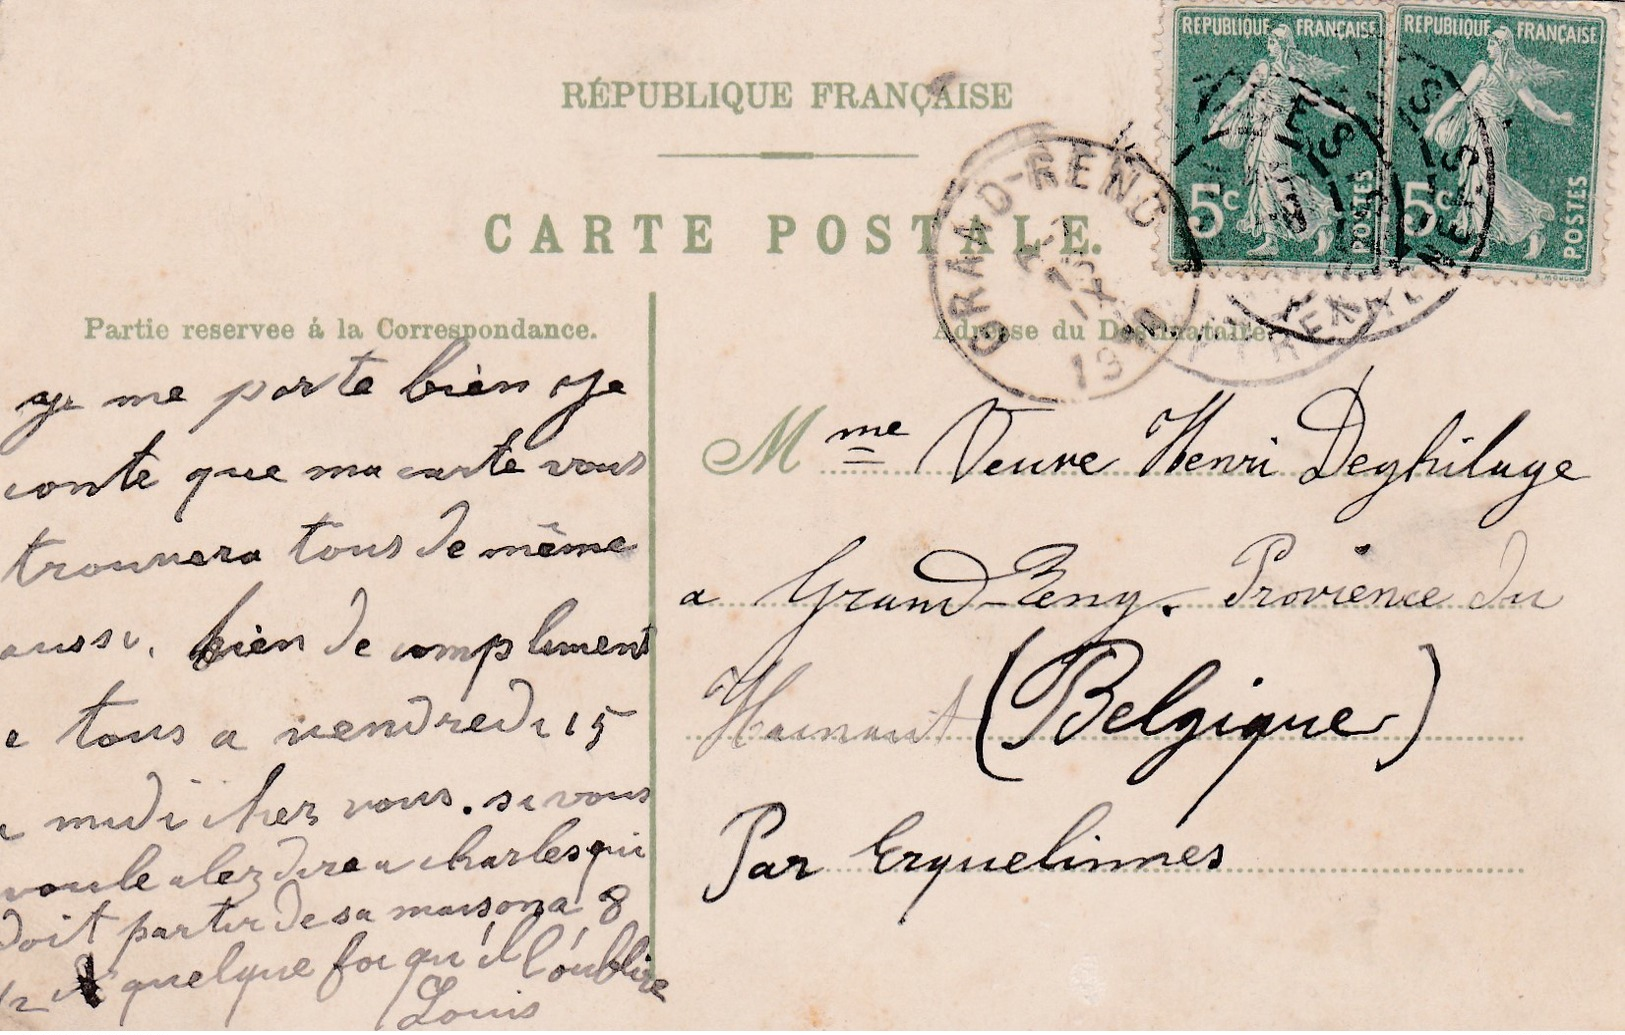 RÉPUBLIQUE FRANÇAISE
CARTE POSTALE.
REPUBLIQUE FRANÇAISE
5c
POSTES
REPUBLIQUE FRANÇAISE
5c
POSTES
GRAND-RENG
13
IX
Partie reservee á la Correspondance.
je me porte bien je
conte que ma carte vous
trouvera tous de même
aussi. bien de complement
e tous a vendredi 15
a midi chez vous. si vous
voule alez dire a charles qui
doit partir de sa maison a 8
quelque foi qu'il l'oublire
Louis
Adresse du Destinataire
Mme Veuve Henri Deghilage
a Grand-Reng. Provience du
Hainaut (Belgique)
Par Erquelinnes